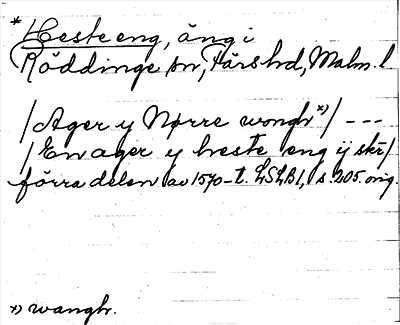 * Hesteeng, äng i
Röddinge sn, Färs hd, Malm. l
/Ager y Nørre wongh x)/ ---
/En ager y heste eng ij skr/
förra delen av 1570-t. LSLB1, s. 205. orig.
x) wangh.